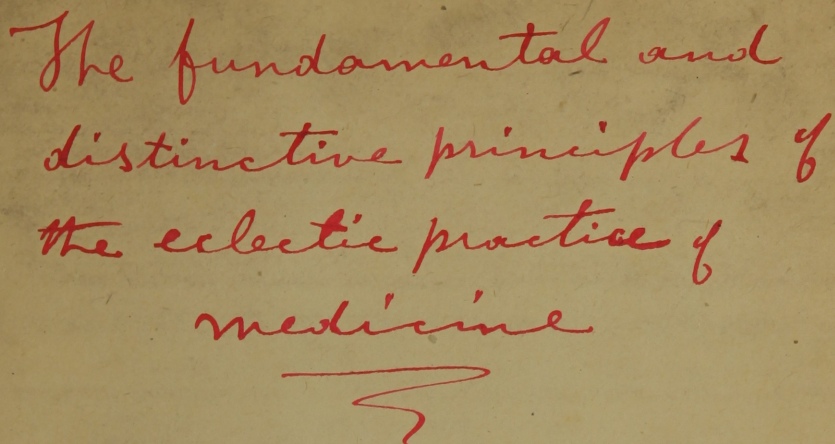 The fundamental and
distinctive principles of
the eclectic practice of
medicine